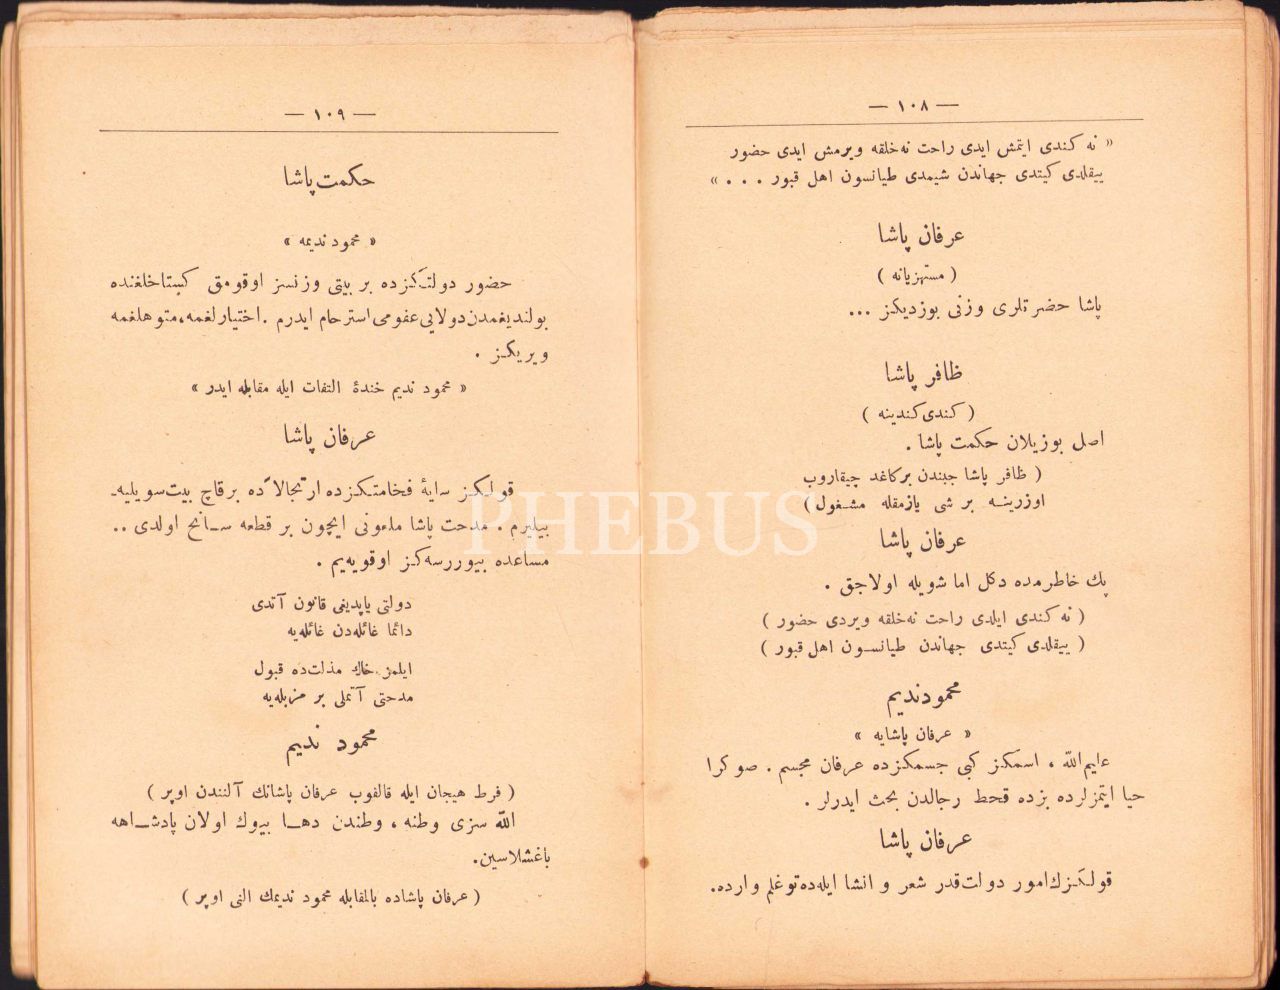 — ١٠٨ —
« نه كندی ایتمش ایدی راحت نه‌خلقه ویرمش ایدی حضور
ییقلدی كیتدی جهاندن شیمدی طیانسون اهل قبور . . . »
عرفان پاشا
( مستهزیانه )
پاشا حضرتلری وزنی بوزدیكز ...
ظافر پاشا
( كندی كندینه )
اصل بوزیلان حكمت پاشا .
( ظافر پاشا جبندن بركاغد چیقاروب
اوزرینه بر شی یازمقله مشغول )
عرفان پاشا
پك خاطرمده دكل اما شویله اولاجق .
( نه كندی ایلدی راحت نه‌خلقه ویردی حضور )
( ییقلدی كیتدی جهاندن طیانسون اهل قبور )
محمود ندیم
« عرفان پاشایه »
علیم‌الله ، اسمكز كبی جسمكزده عرفان مجسم . صوكرا
حیا ایتمزلرده بزده قحط رجالدن بحث ایدرلر .
عرفان پاشا
قولكزك امور دولت‌قدر شعر و انشا ایله‌ده توغلم وارده.
— ١٠٩ —
حكمت پاشا
« محمود ندیمه »
حضور دولتكزده بر بیتی وزنسز اوقومق كستاخلغنده
بولندیغمدن دولایی عفومی استرحام ایدرم . اختیارلغمه، متوهلغمه
ویریكز .
« محمود ندیم خندهٔ التفات ایله مقابله ایدر »
عرفان پاشا
قولكز سایهٔ فخامتكزده ارتجالاً ده برقاچ بیت سویلیه‌
بیلیرم . مدحت پاشا ملعونی ایچون بر قطعه سانح اولدی ..
مساعده بیوررسه‌كز اوقویه‌یم .
دولتی یاپدیغی قانون آتدی
دائما غائله‌دن غائله‌یه
ایلمز خاك مذلت‌ده قبول
مدحتی آتملی بر مزبله‌یه
محمود ندیم
( فرط هیجان ایله قالقوب عرفان پاشانك آلنندن اوپر )
الله سزی وطنه ، وطندن دها بیوك اولان پادشاهه
باغشلاسین.
( عرفان پاشاده بالمقابله محمود ندیمك النی اوپر )
PHEBUS